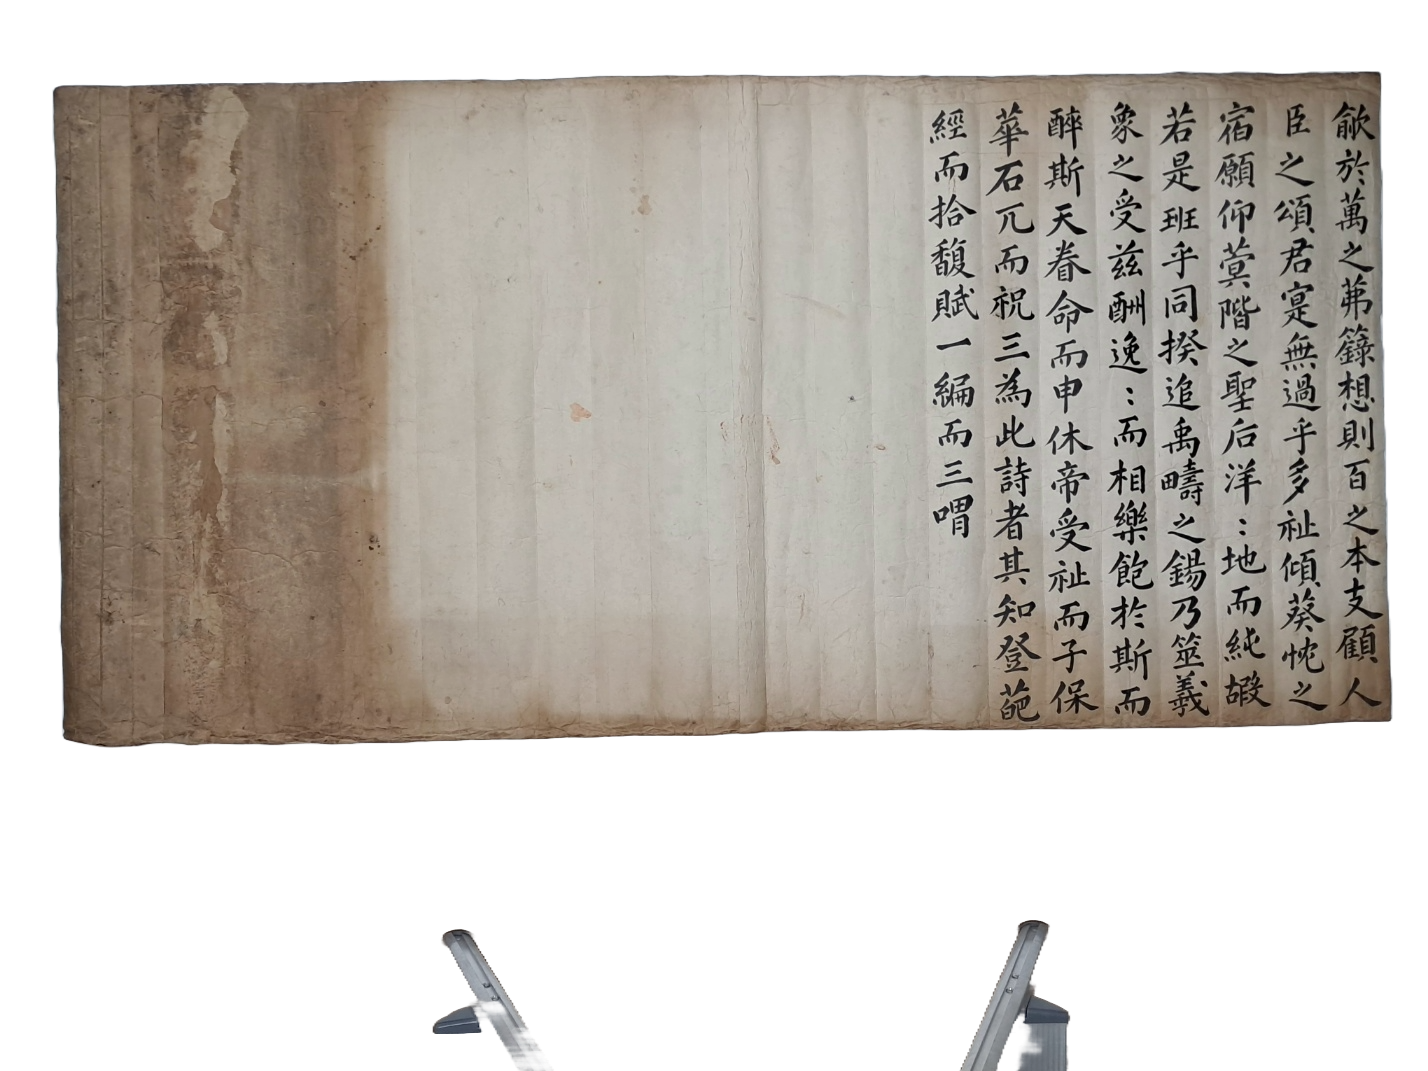 歈於萬之茀籙想則百之本支顧人
臣之頌君寔無過乎多祉傾葵忱之
宿願仰蓂階之聖后洋:地而純嘏
若是班乎同揆追禹疇之錫乃筮羲
象之受兹酬逸:而相樂飽於斯而
醉斯天眷命而申休帝受祉而子保
華石兀而祝三為此詩者其知登葩
經而拾馥賦一編而三喟